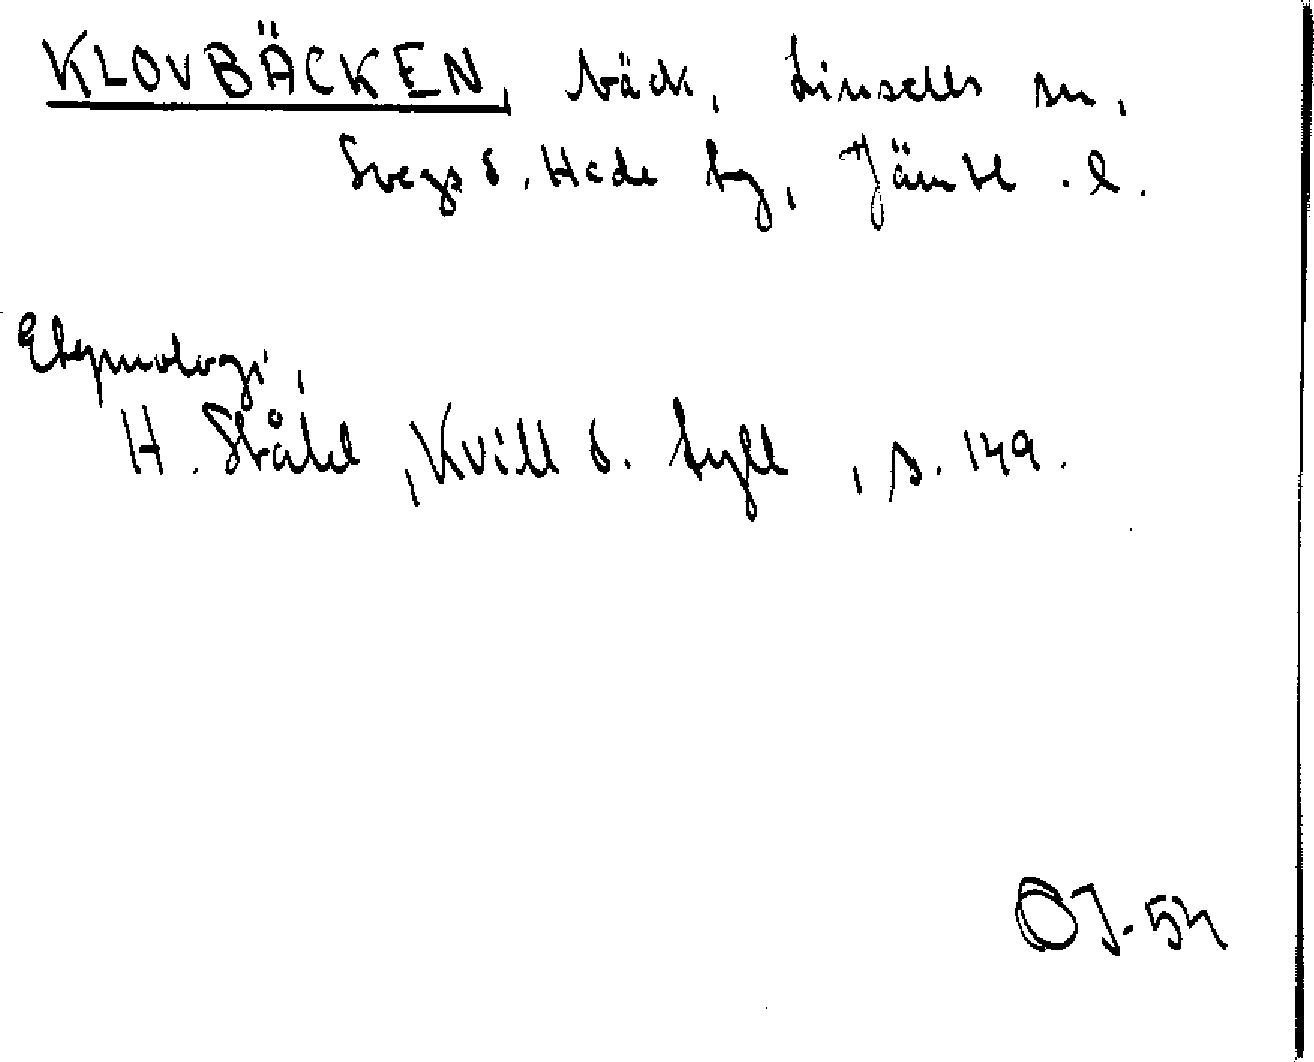 KLOVBÄCKEN, bäck, Linsells sn,
Svegs o. Hede tg, Jämtl. l.
Etymologi,
H. Ståhl, Kvill o. tyll, s. 149.
OJ. 54